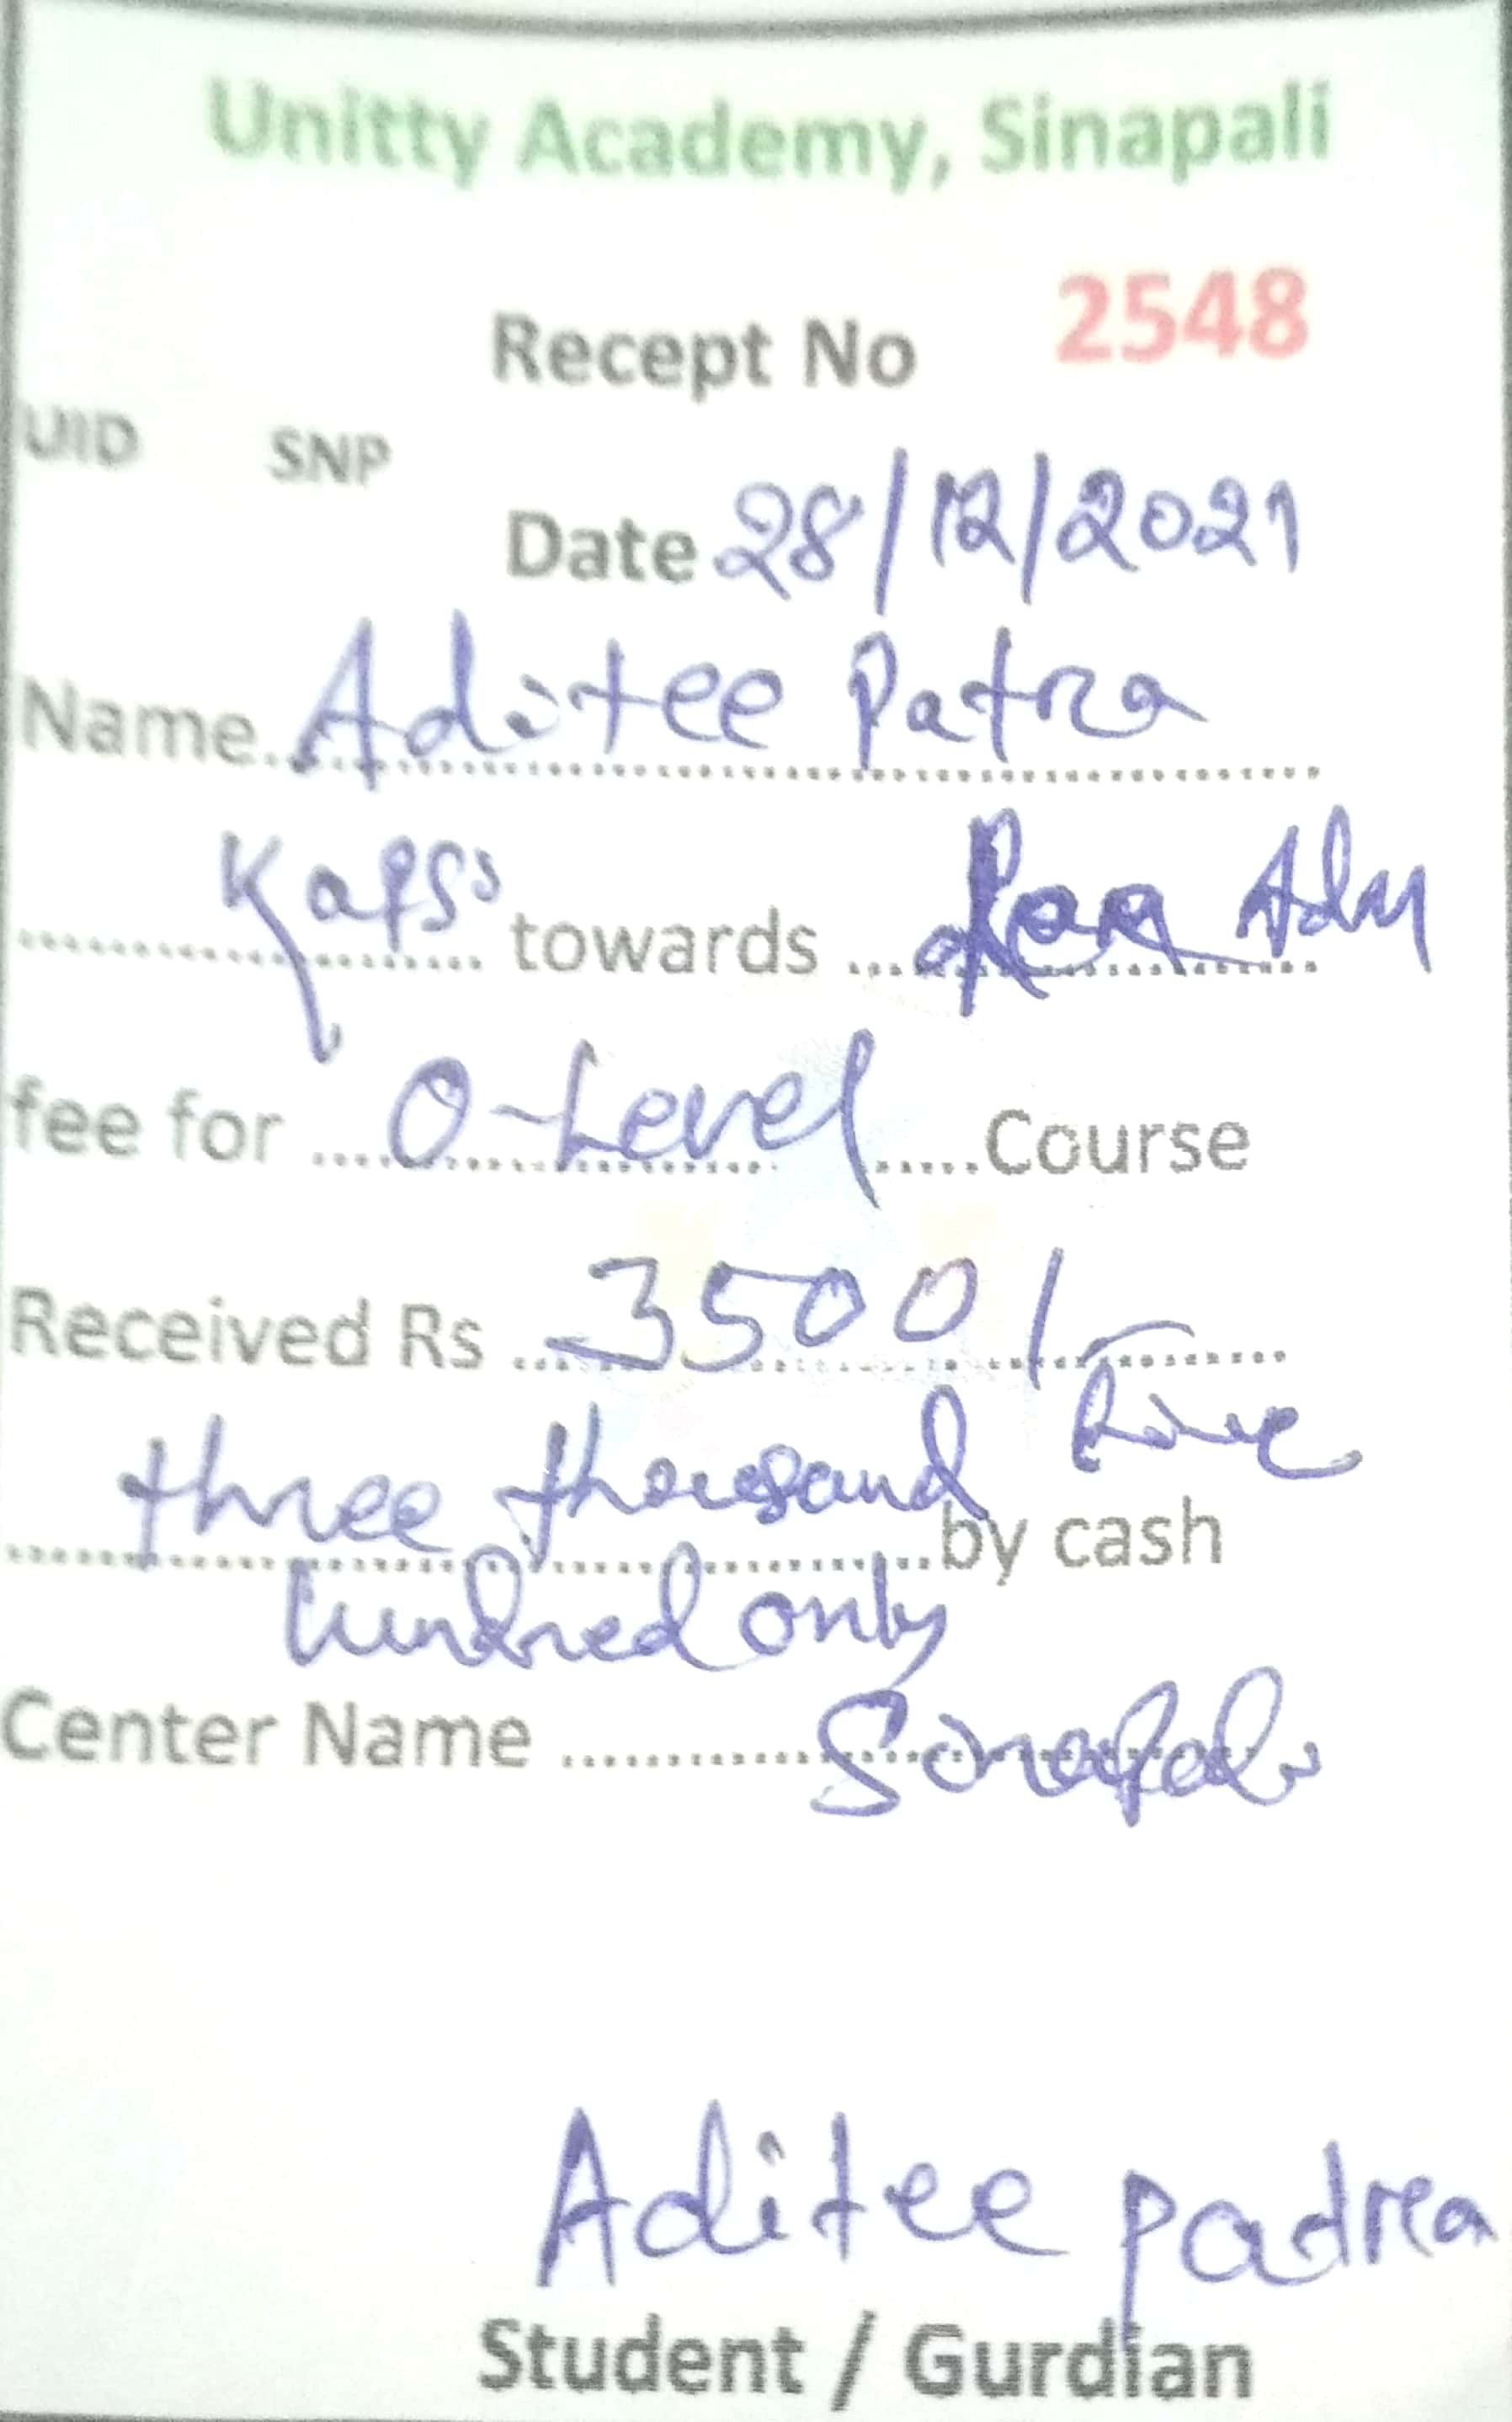 Unitty Academy, Sinapali
Recept No 2548
UID SNP
Date 28/12/2021
Name Aditee Patra
towards Adm
fee for O-Level Course
Received Rs 3500/-
three thousand five
by cash
hundred only
Center Name Sinapali
Aditee patra
Student / Gurdian